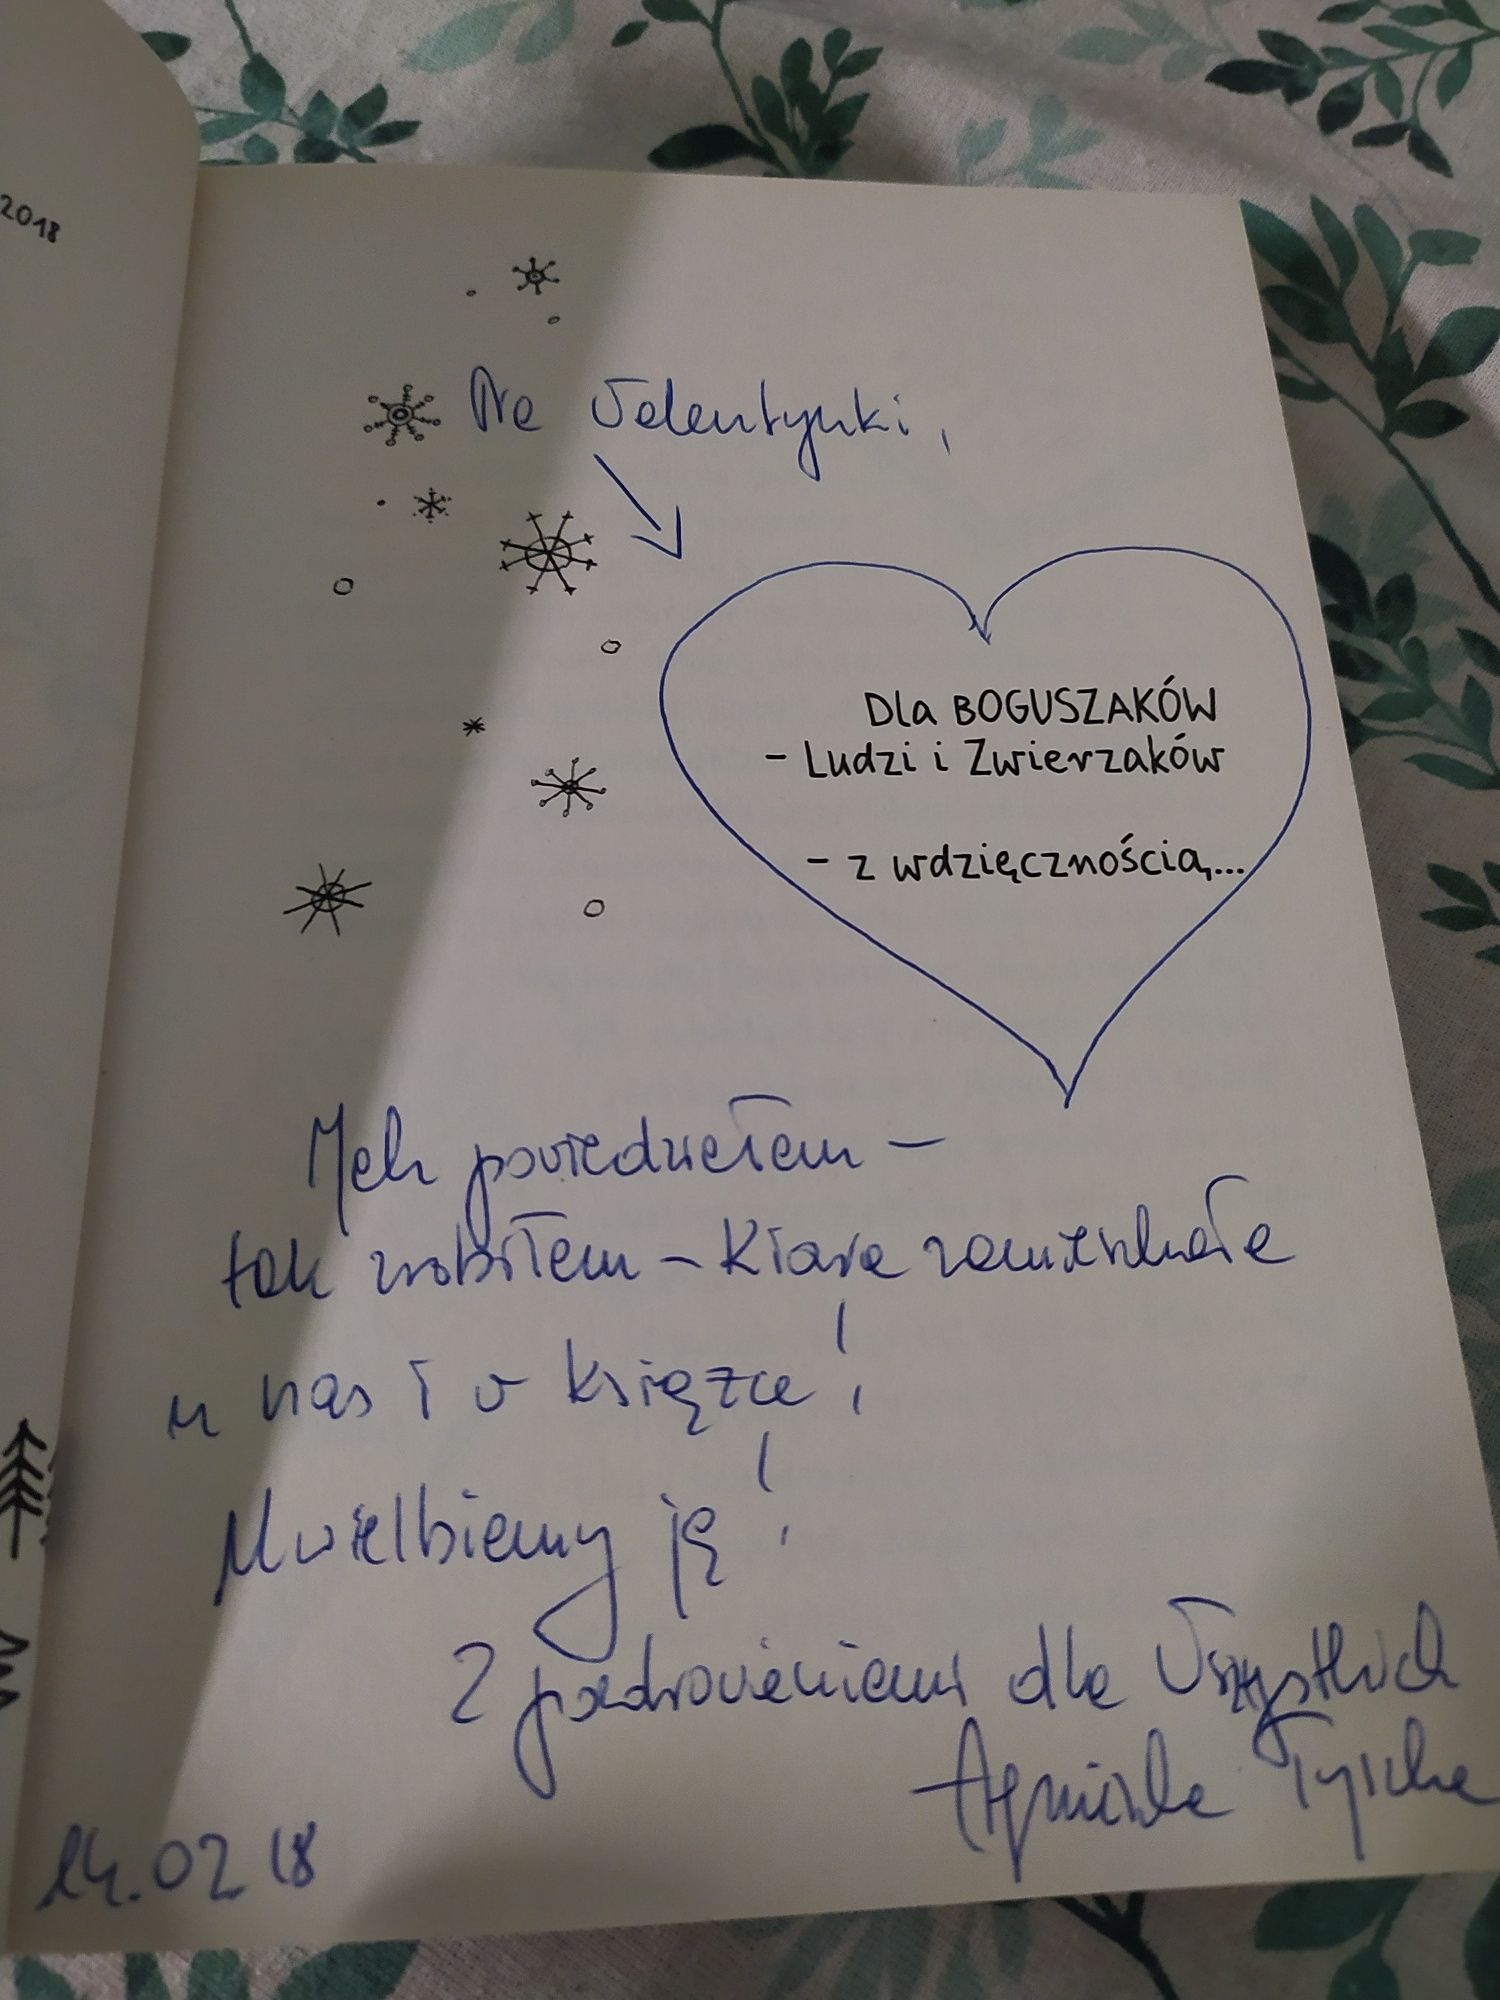 2018
Na Walentynki,
Dla BOGUSZAKÓW
- Ludzi i Zwierzaków
- z wdzięcznością...
Jak powiedziałam -
tak zrobiłam - Kiara zamieszkała
u nas i w książce!
Uwielbiamy ją!
Z pozdrowieniami dla Wszystkich
Agnieszka Tyszka
14.02 18